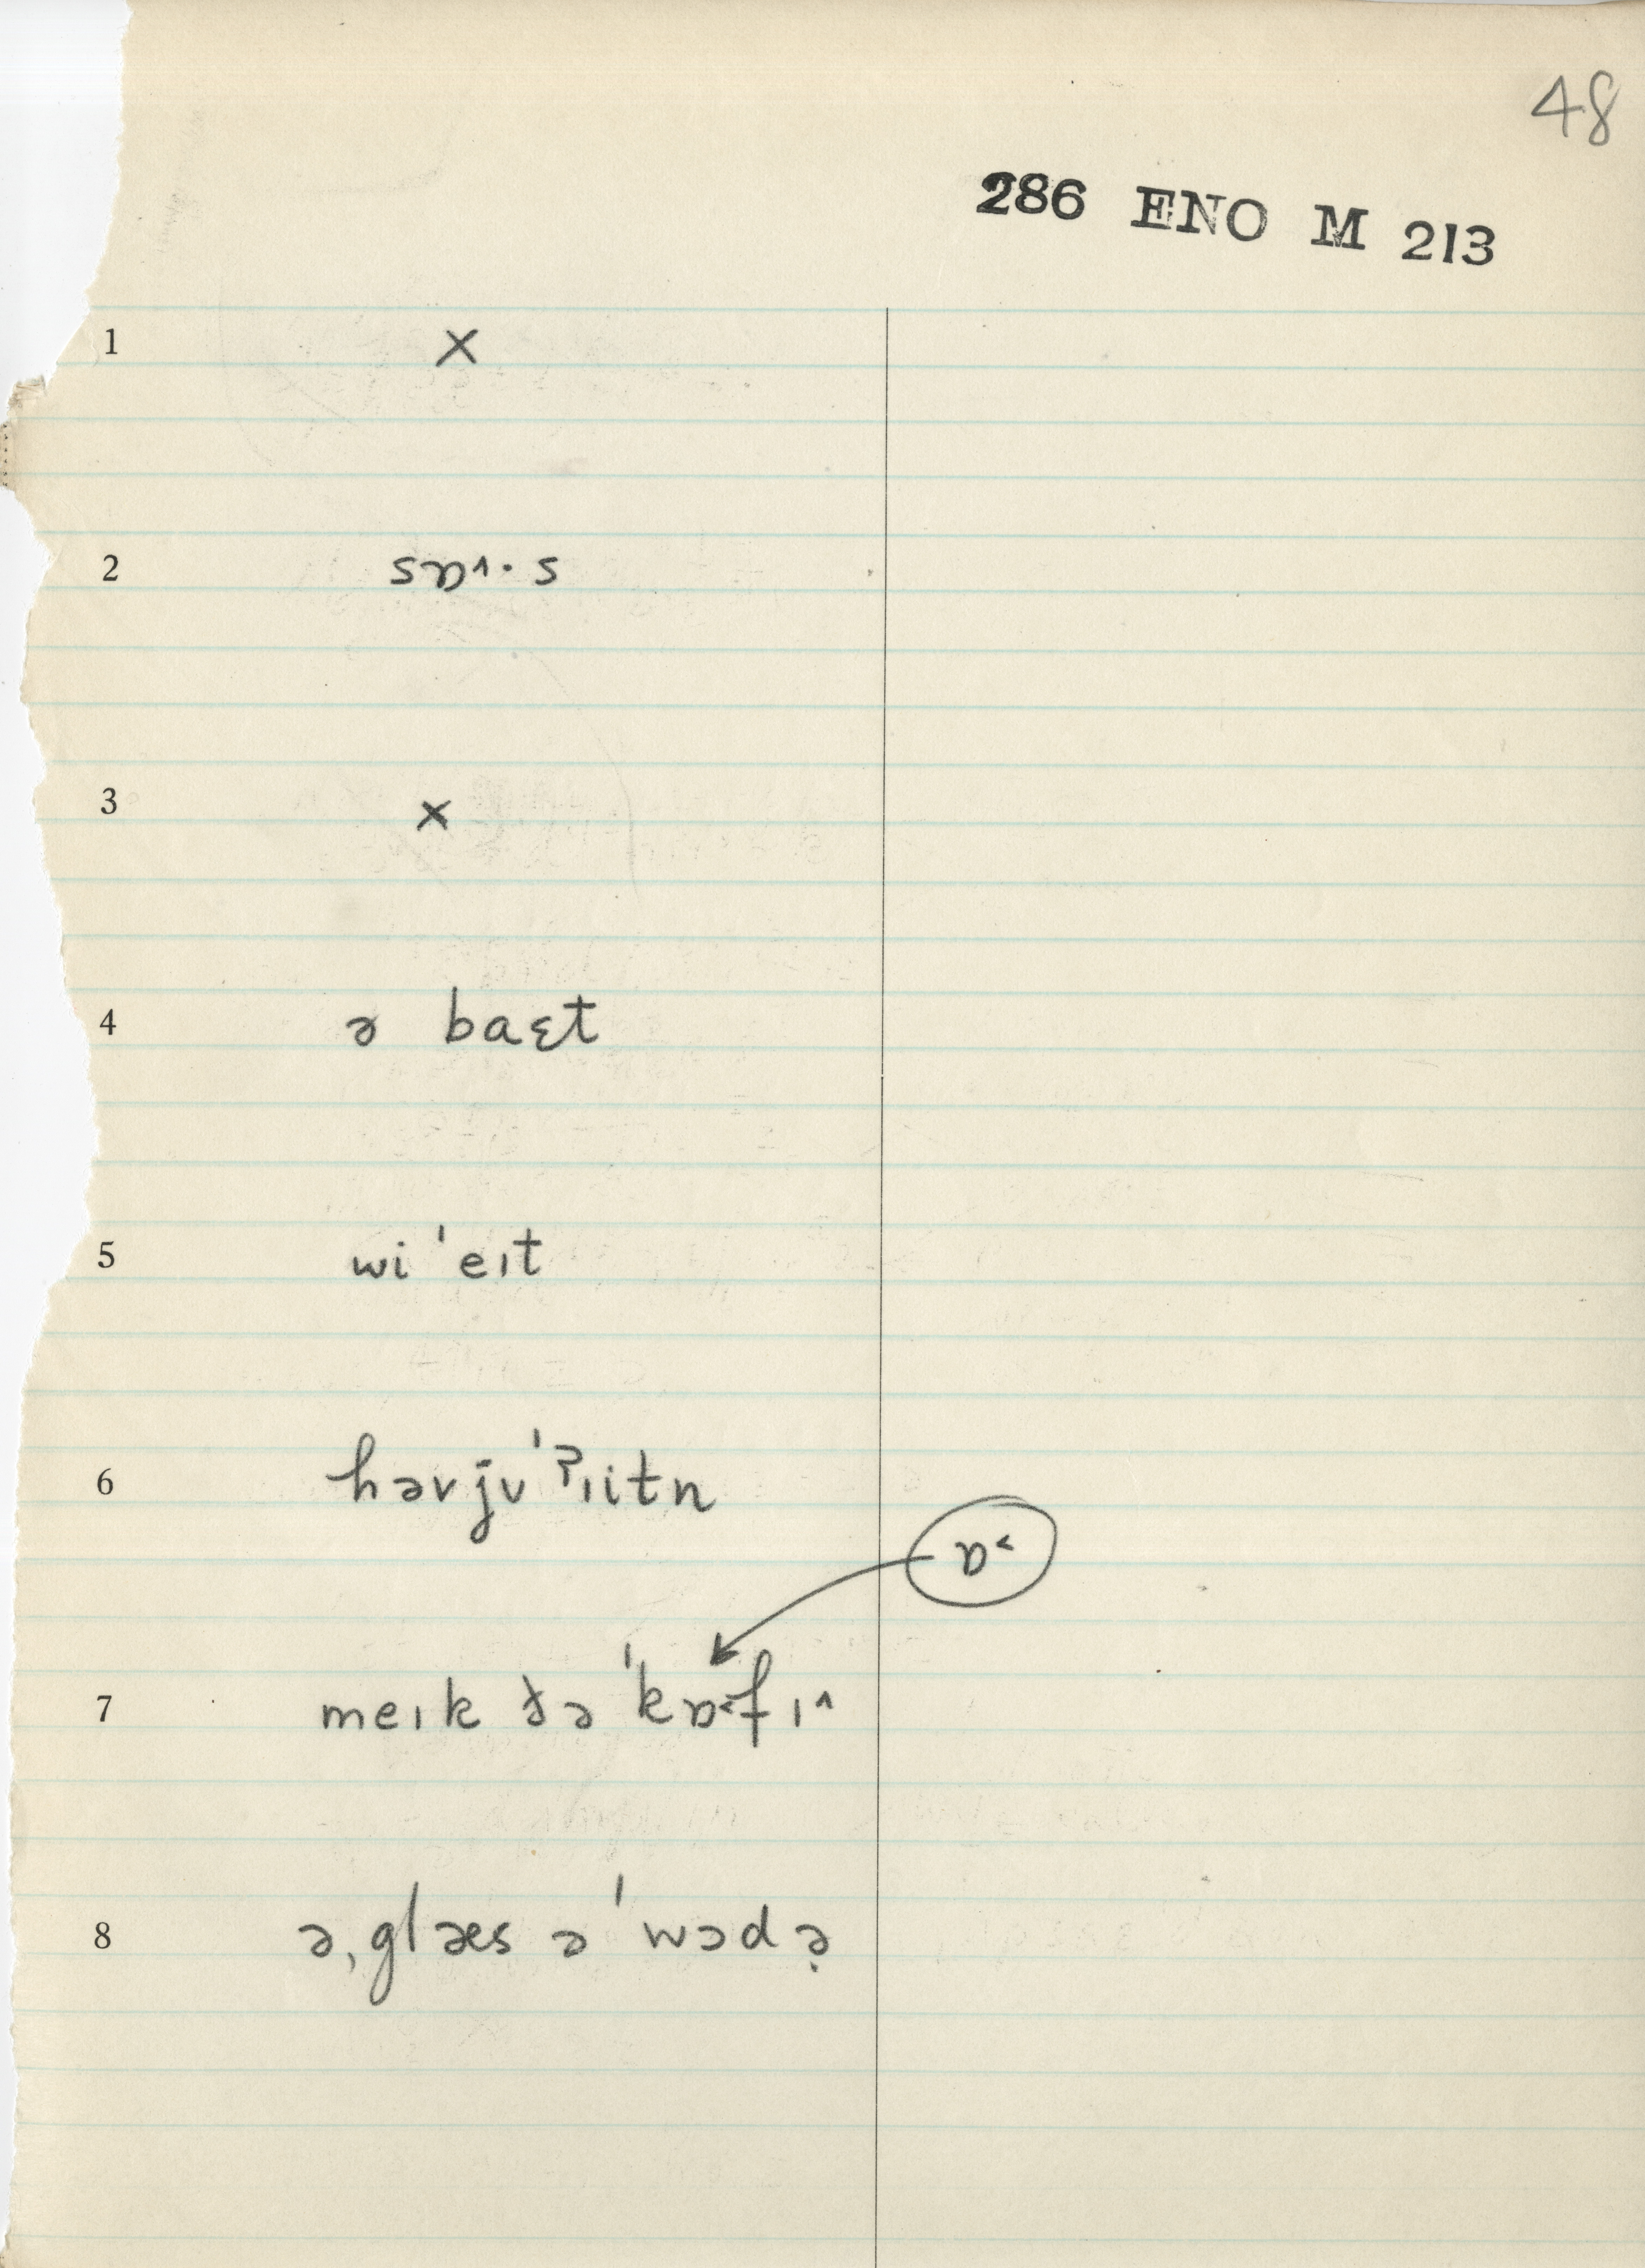 48
286 ENO M 213
1 ×
2 sɒ˄·s
3 ×
4 ə baɛt
5 wi ˈeɪt
6 həvjʊˈʔɪitn
ɒ˂
7 meɪk ðə ˈkɒ˂fɪ^
8 ə ˌglæs ə ˈwɔdə̣